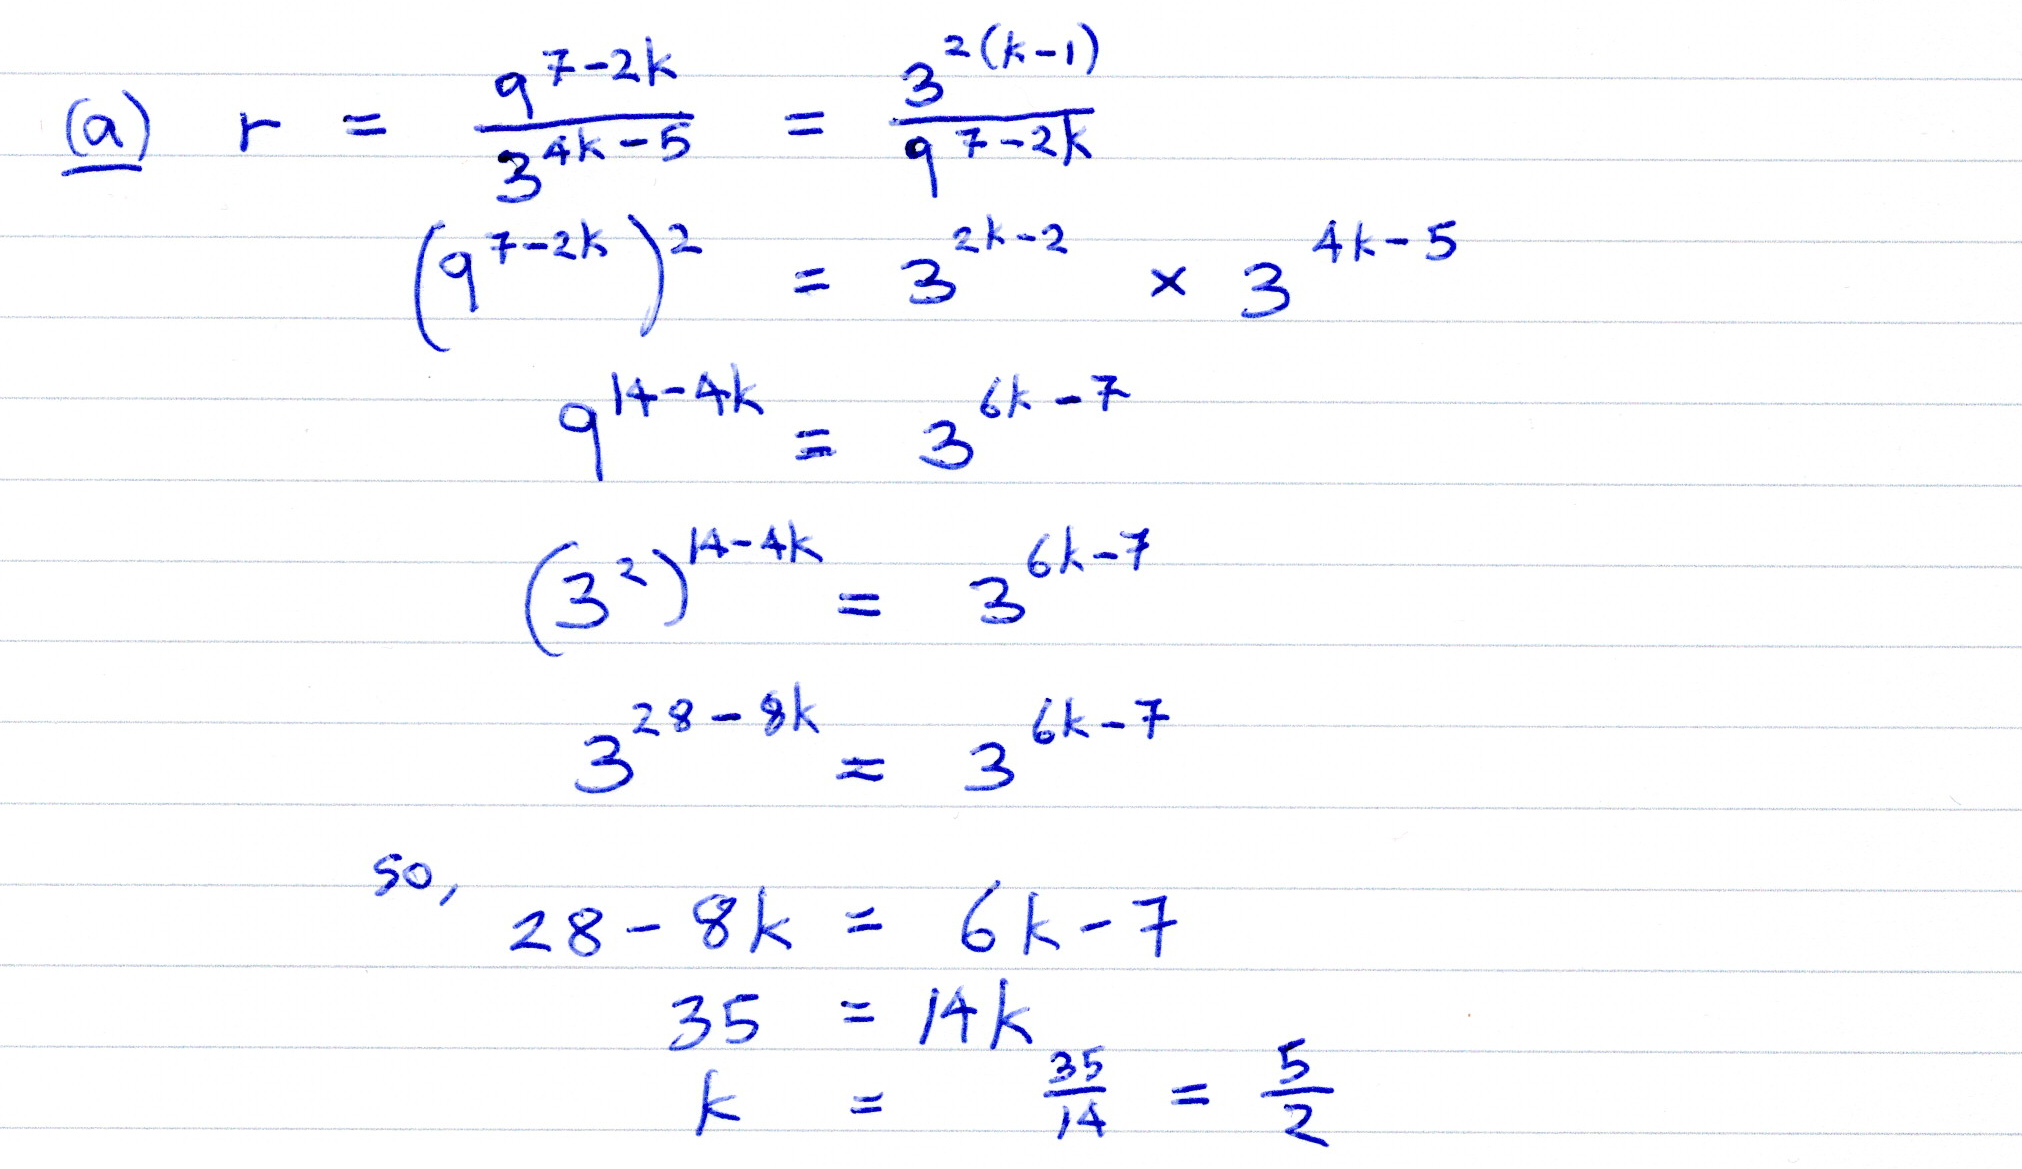 (a) r = 9^(7-2k) / 3^(4k-5) = 3^(2(k-1)) / 9^(7-2k)
(9^(7-2k))^2 = 3^(2k-2) × 3^(4k-5)
9^(14-4k) = 3^(6k-7)
(3^2)^(14-4k) = 3^(6k-7)
3^(28-8k) = 3^(6k-7)
so,
28-8k = 6k-7
35 = 14k
k = 35/14 = 5/2